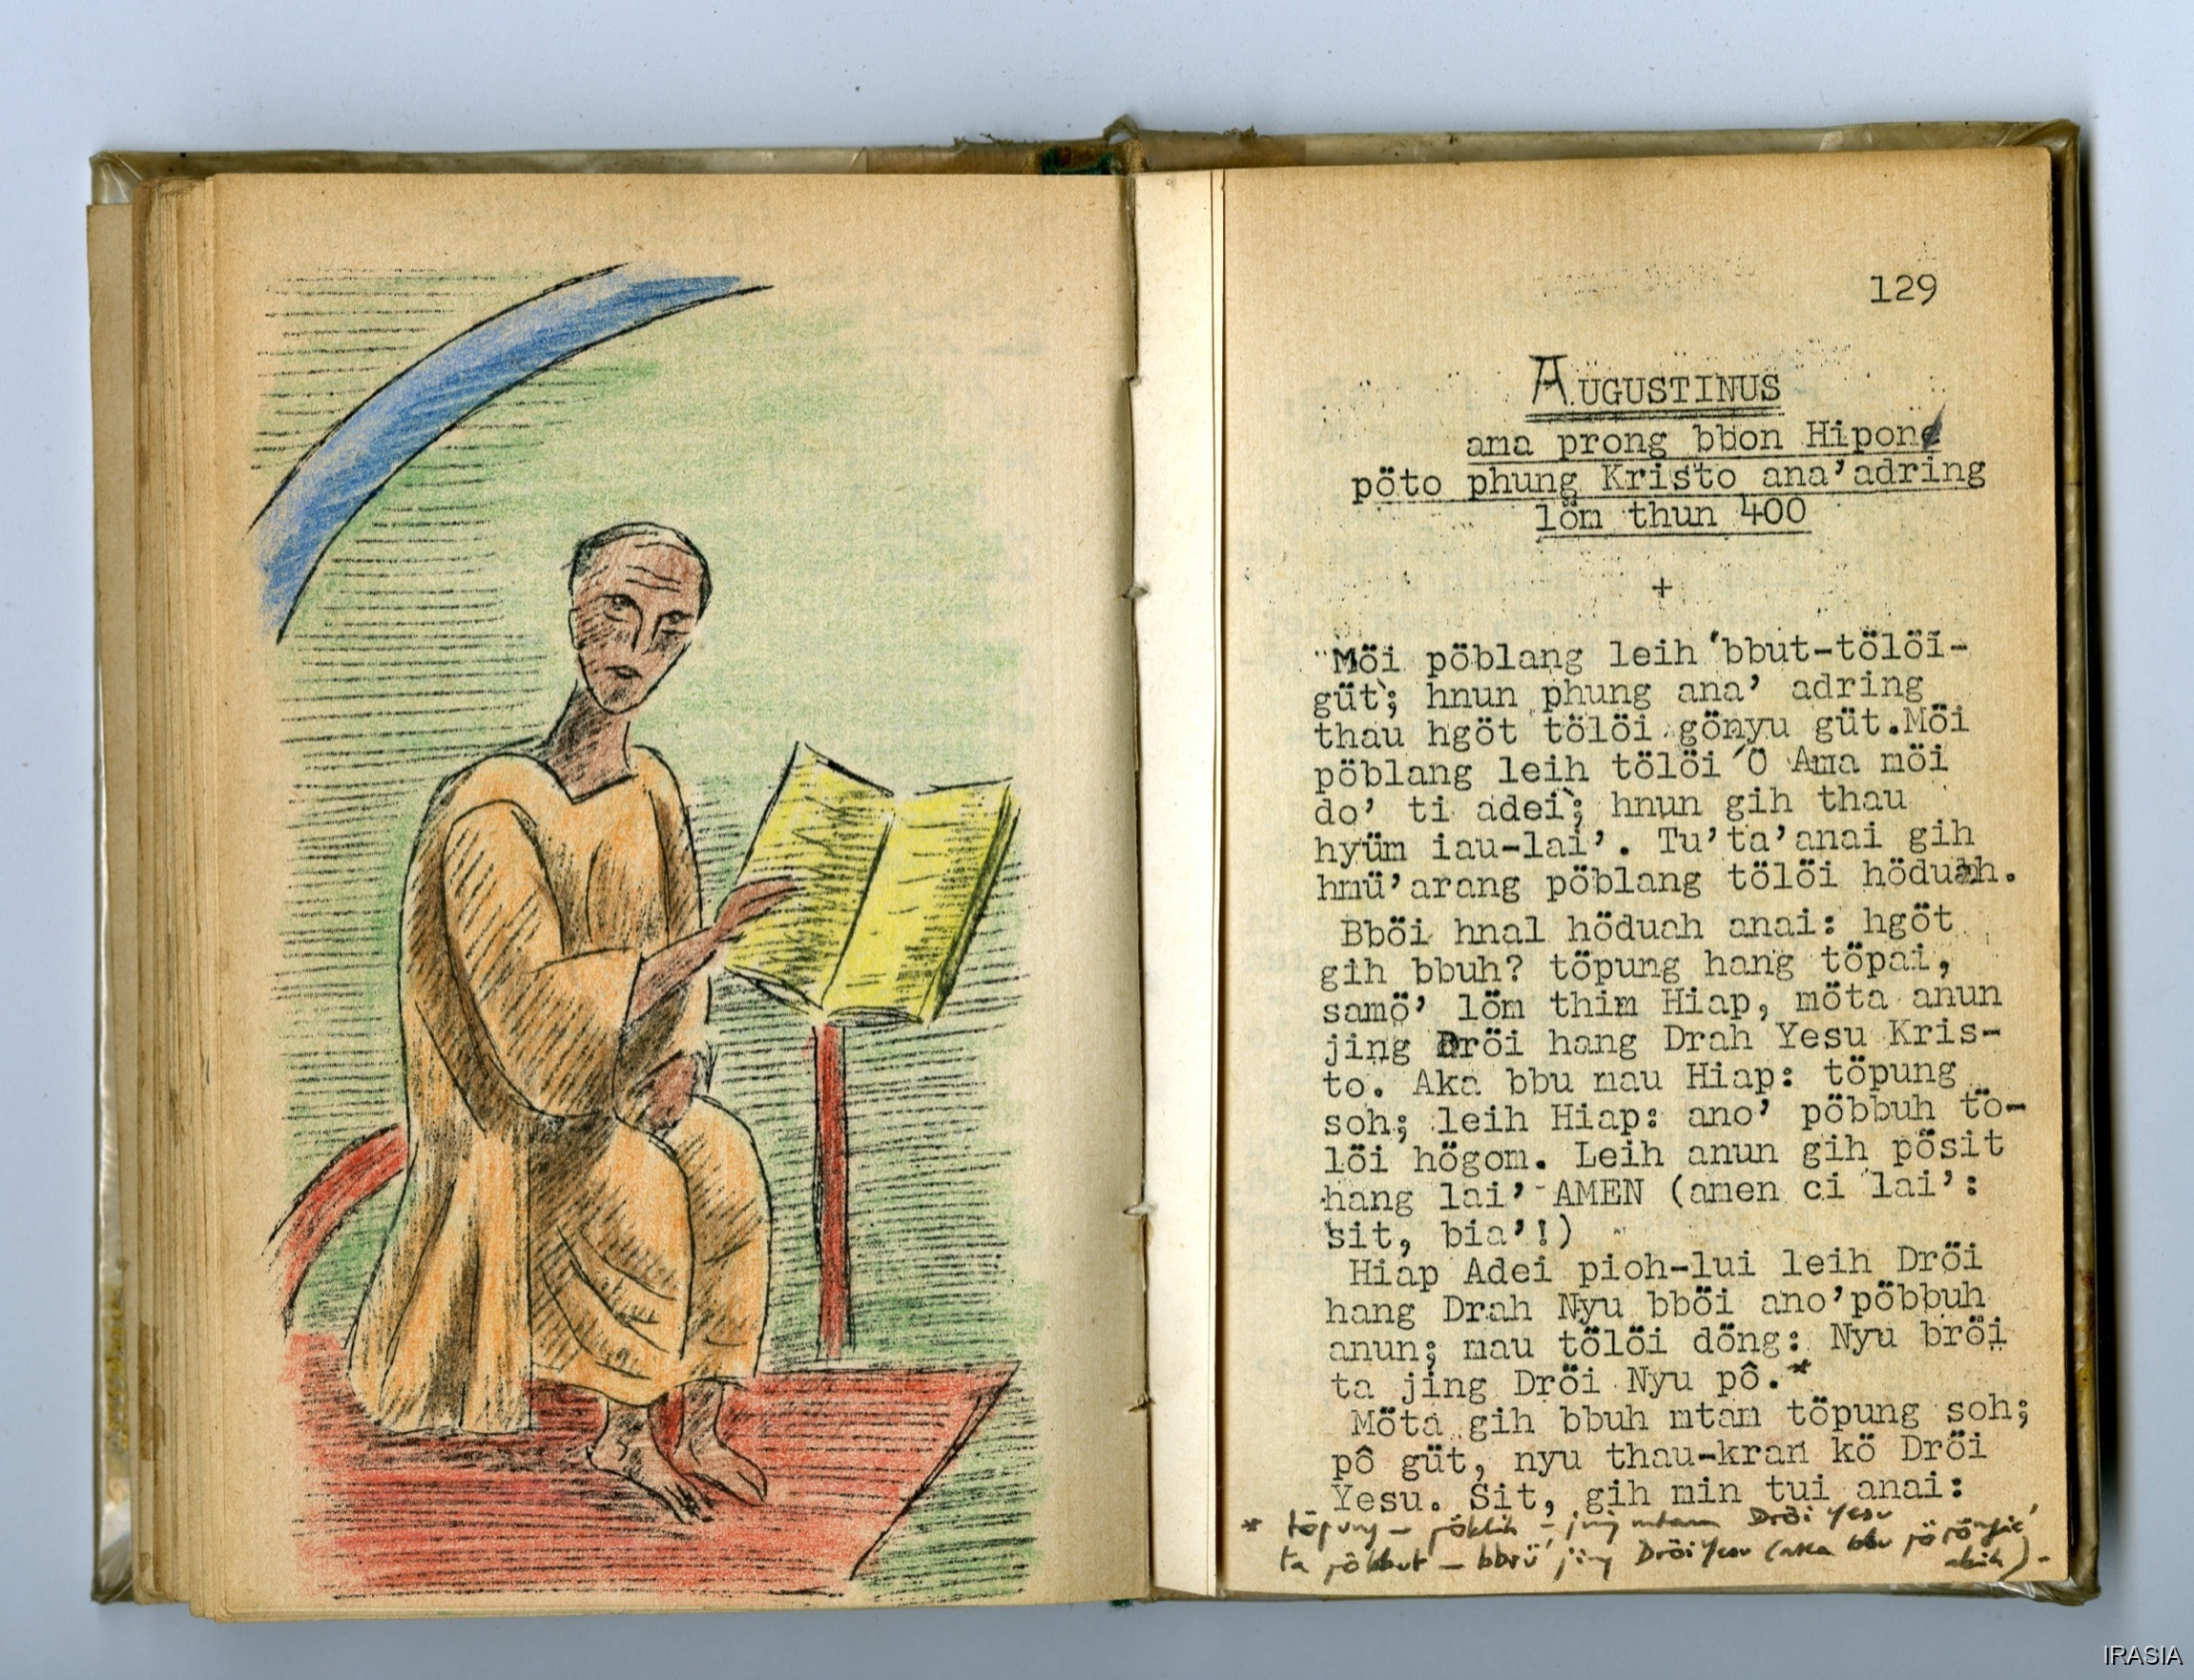 129
AUGUSTINUS
ama prong bbon Hipone
pöto phung Kristo ana’adring
löm thun 400
+
"Möi pöblang leih 'bbut-tölöi-
güt'; hnun phung ana’ adring
thau hgöt tölöi gönyu güt.Möi
pöblang leih tölöi 'O Ama möi
do’ ti adei'; hnun gih thau
hyüm iau-lai’. Tu’ta’anai gih
hmü’arang pöblang tölöi höduah.
Bböi hnal höduah anai: hgöt
gih bbuh? töpung hang töpai,
samö’ löm thim Hiap, möta anun
jing Dröi hang Drah Yesu Kris-
to. Aka bbu mau Hiap: töpung
soh; leih Hiap: ano’ pöbbuh tö-
löi högom. Leih anun gih pösit
hang lai’ AMEN (amen ci lai’:
sit, bia’!)
Hiap Adei pioh-lui leih Dröi
hang Drah Nyu bböi ano’pöbbuh
anun; mau tölöi döng: Nyu bröi
ta jing Dröi Nyu pô.*
Möta gih bbuh mtam töpung soh;
pô güt, nyu thau-kran kö Dröi
Yesu. Sit, gih min tui anai:
* töpung - jing mtam Dröi Yesu
ta pöbbut - bbrü' jing Dröi Yesu (aka bbu
IRASIA